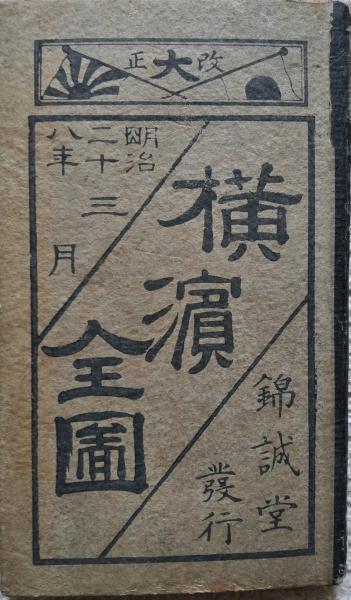 改大正
明治
二十
八年
三月
横濱全圖
錦誠堂
發行